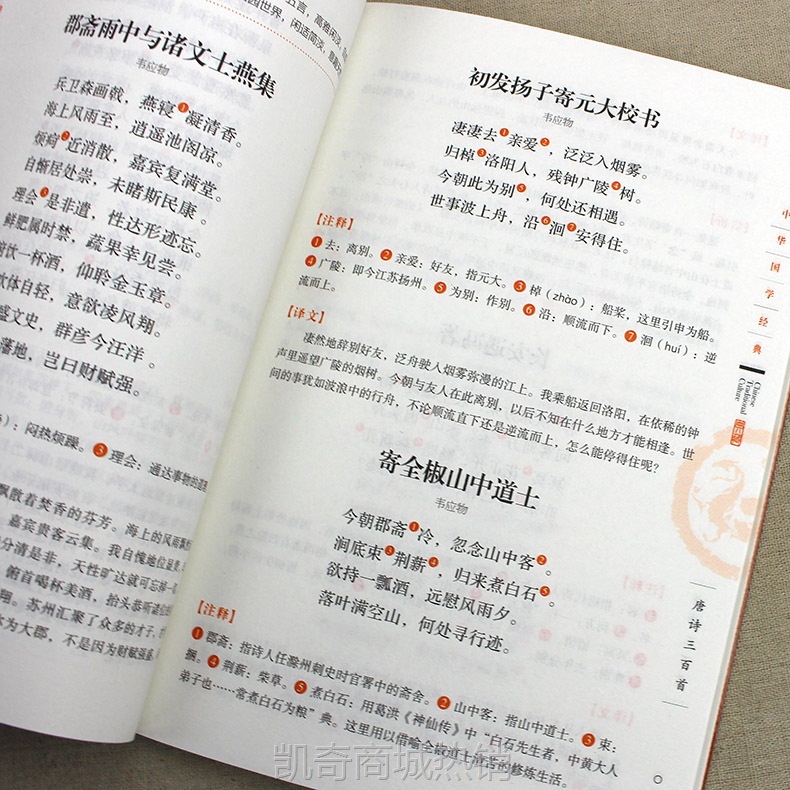 五言，高雅闲淡，
园世界，闲适简淡，意蕴
郡斋雨中与诸文士燕集
韦应物
兵卫森画戟，燕寝❶凝清香。
海上风雨至，逍遥池阁凉。
烦疴❷近消散，嘉宾复满堂。
自惭居处崇，未睹斯民康。
理会❸是非遣，性达形迹忘。
鲜肥属时禁，蔬果幸见尝。
饮一杯酒，仰聆金玉章。
欢体自轻，意欲凌风翔。
盛文史，群彦今汪洋。
藩地，岂曰财赋强。
：闷热烦躁。❸理会：通达事物的道
飘散着焚香的芬芳。海上的风雨飘
嘉宾贵客云集。我自愧地位显
分清是非，天性旷达就可忘掉一
俯首喝杯美酒，抬头恭听诸位
翔。苏州汇聚了众多的才子，
称为大郡，不是因为财赋强盛
初发扬子寄元大校书
韦应物
凄凄去❶亲爱❷，泛泛入烟雾。
归棹❸洛阳人，残钟广陵❹树。
今朝此为别❺，何处还相遇。
世事波上舟，沿❻洄❼安得住。
【注释】
❶去：离别。❷亲爱：好友，指元大。❸棹（zhào）：船桨，这里引申为船。
❹广陵：即今江苏扬州。❺为别：作别。❻沿：顺流而下。❼洄（huí）：逆
流而上。
【译文】
凄然地辞别好友，泛舟驶入烟雾弥漫的江上。我乘船返回洛阳，在依稀的钟
声里遥望广陵的烟树。今朝与友人在此离别，以后不知在什么地方才能相逢。世
间的事犹如波浪中的行舟，不论顺流直下还是逆流而上，怎么能停得住呢？
寄全椒山中道士
韦应物
今朝郡斋❶冷，忽念山中客❷。
涧底束❸荆薪❹，归来煮白石❺。
欲持一瓢酒，远慰风雨夕。
落叶满空山，何处寻行迹。
【注释】
❶郡斋：指诗人任滁州刺史时官署中的斋舍。❷山中客：指山中道士。❸束：
捆。❹荆薪：柴草。❺煮白石：用葛洪《神仙传》中“白石先生者，中黄大人
弟子也……常煮白石为粮”典。这里用以借喻全椒道士清苦的修炼生活。
中华国学经典
Chinese
Traditional
Culture
唐诗三百首
凯奇商城热销